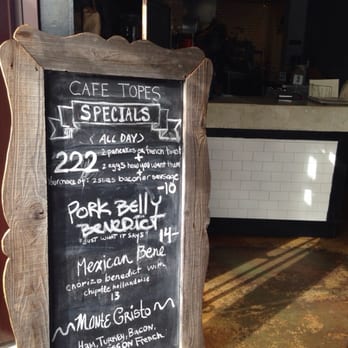 CAFE TOPES
SPECIALS
(ALL DAY)
222 2 pancakes or french toast
+
2 eggs how you want them
+
your choice of: 2 slices bacon or sausage
-10
PORK BELLY
BENEDICT
"JUST WHAT IT SAYS"
14-
Mexican Bene
chorizo benedict with
chipotle hollandaise
13
Monte Cristo
HAM, TURKEY, BACON,
French